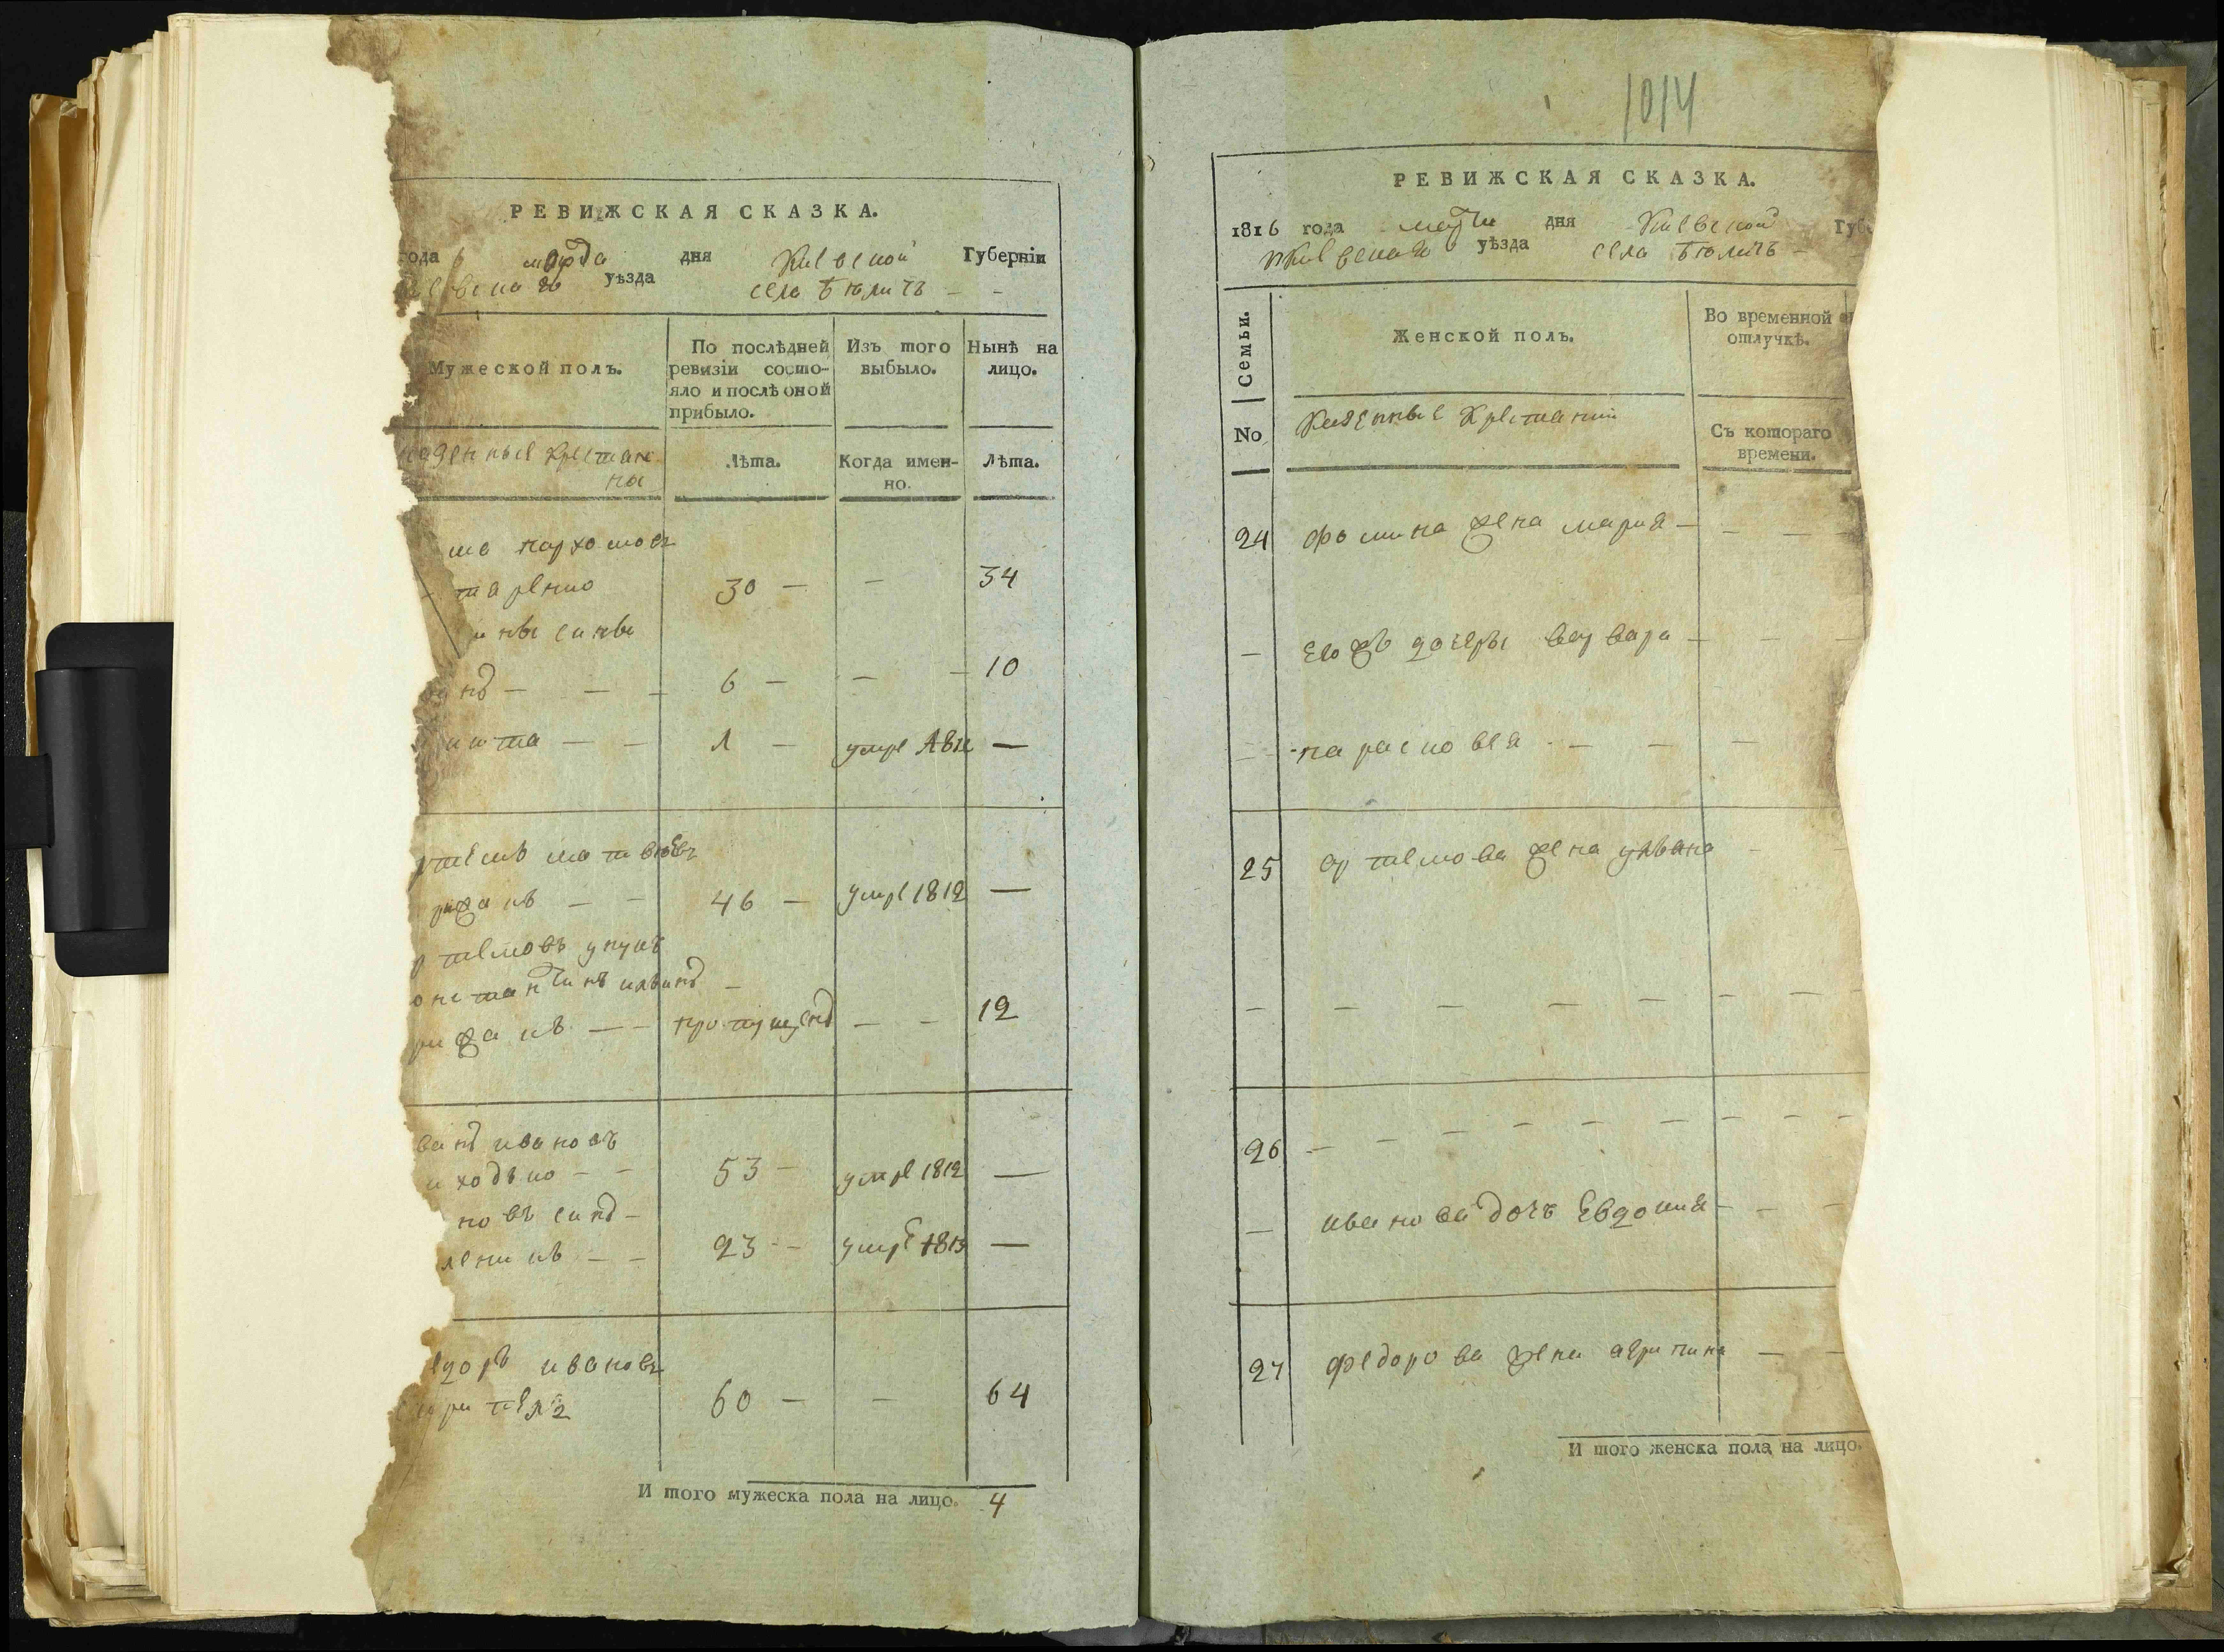 РЕВИЖСКАЯ СКАЗКА.
года марта дня Киевской Губерніи
уѣзда села Бѣличъ
Мужеской полъ.
По послѣдней ревизіи состо-
яло и послѣ оной прибыло.
Изъ того выбыло.
Нынѣ на лицо.
Лѣта.
Когда имен-
но.
Лѣта.
ма пархомовъ
таренко 30 — — 34
ины сины
6 — — 10
кита — — 1 — умре 1812 —
ртемъ матвѣевъ
рижакъ — — 46 — умре 1812 —
ртемовъ унукъ
онстантинъ
рижакъ — — пропущенъ — — 12
ванъ ивановъ
иходько — — 53 — умре 1812 —
новъ синъ —
23 — умре 1813 —
едоръ ивановъ
60 — — 64
И того мужеска пола на лицо. 4
1014
РЕВИЖСКАЯ СКАЗКА.
1816 года марта дня Киевской Губ
Киевскаго уѣзда села Бѣличъ —
Семьи.
Женской полъ.
Во временной
отлучкѣ.
No
Казенные Крестяни
Съ котораго
времени.
24 фомина жена мария — — —
— его жъ дочеры варвара — — —
— парасковея — — —
25 артемова жена улвяна — —
— — — — — — — —
26 — — — — — — — — —
— иванова дочъ Евдокия — — —
27 федорова жена агрипина — —
И того женска пола на лицо.